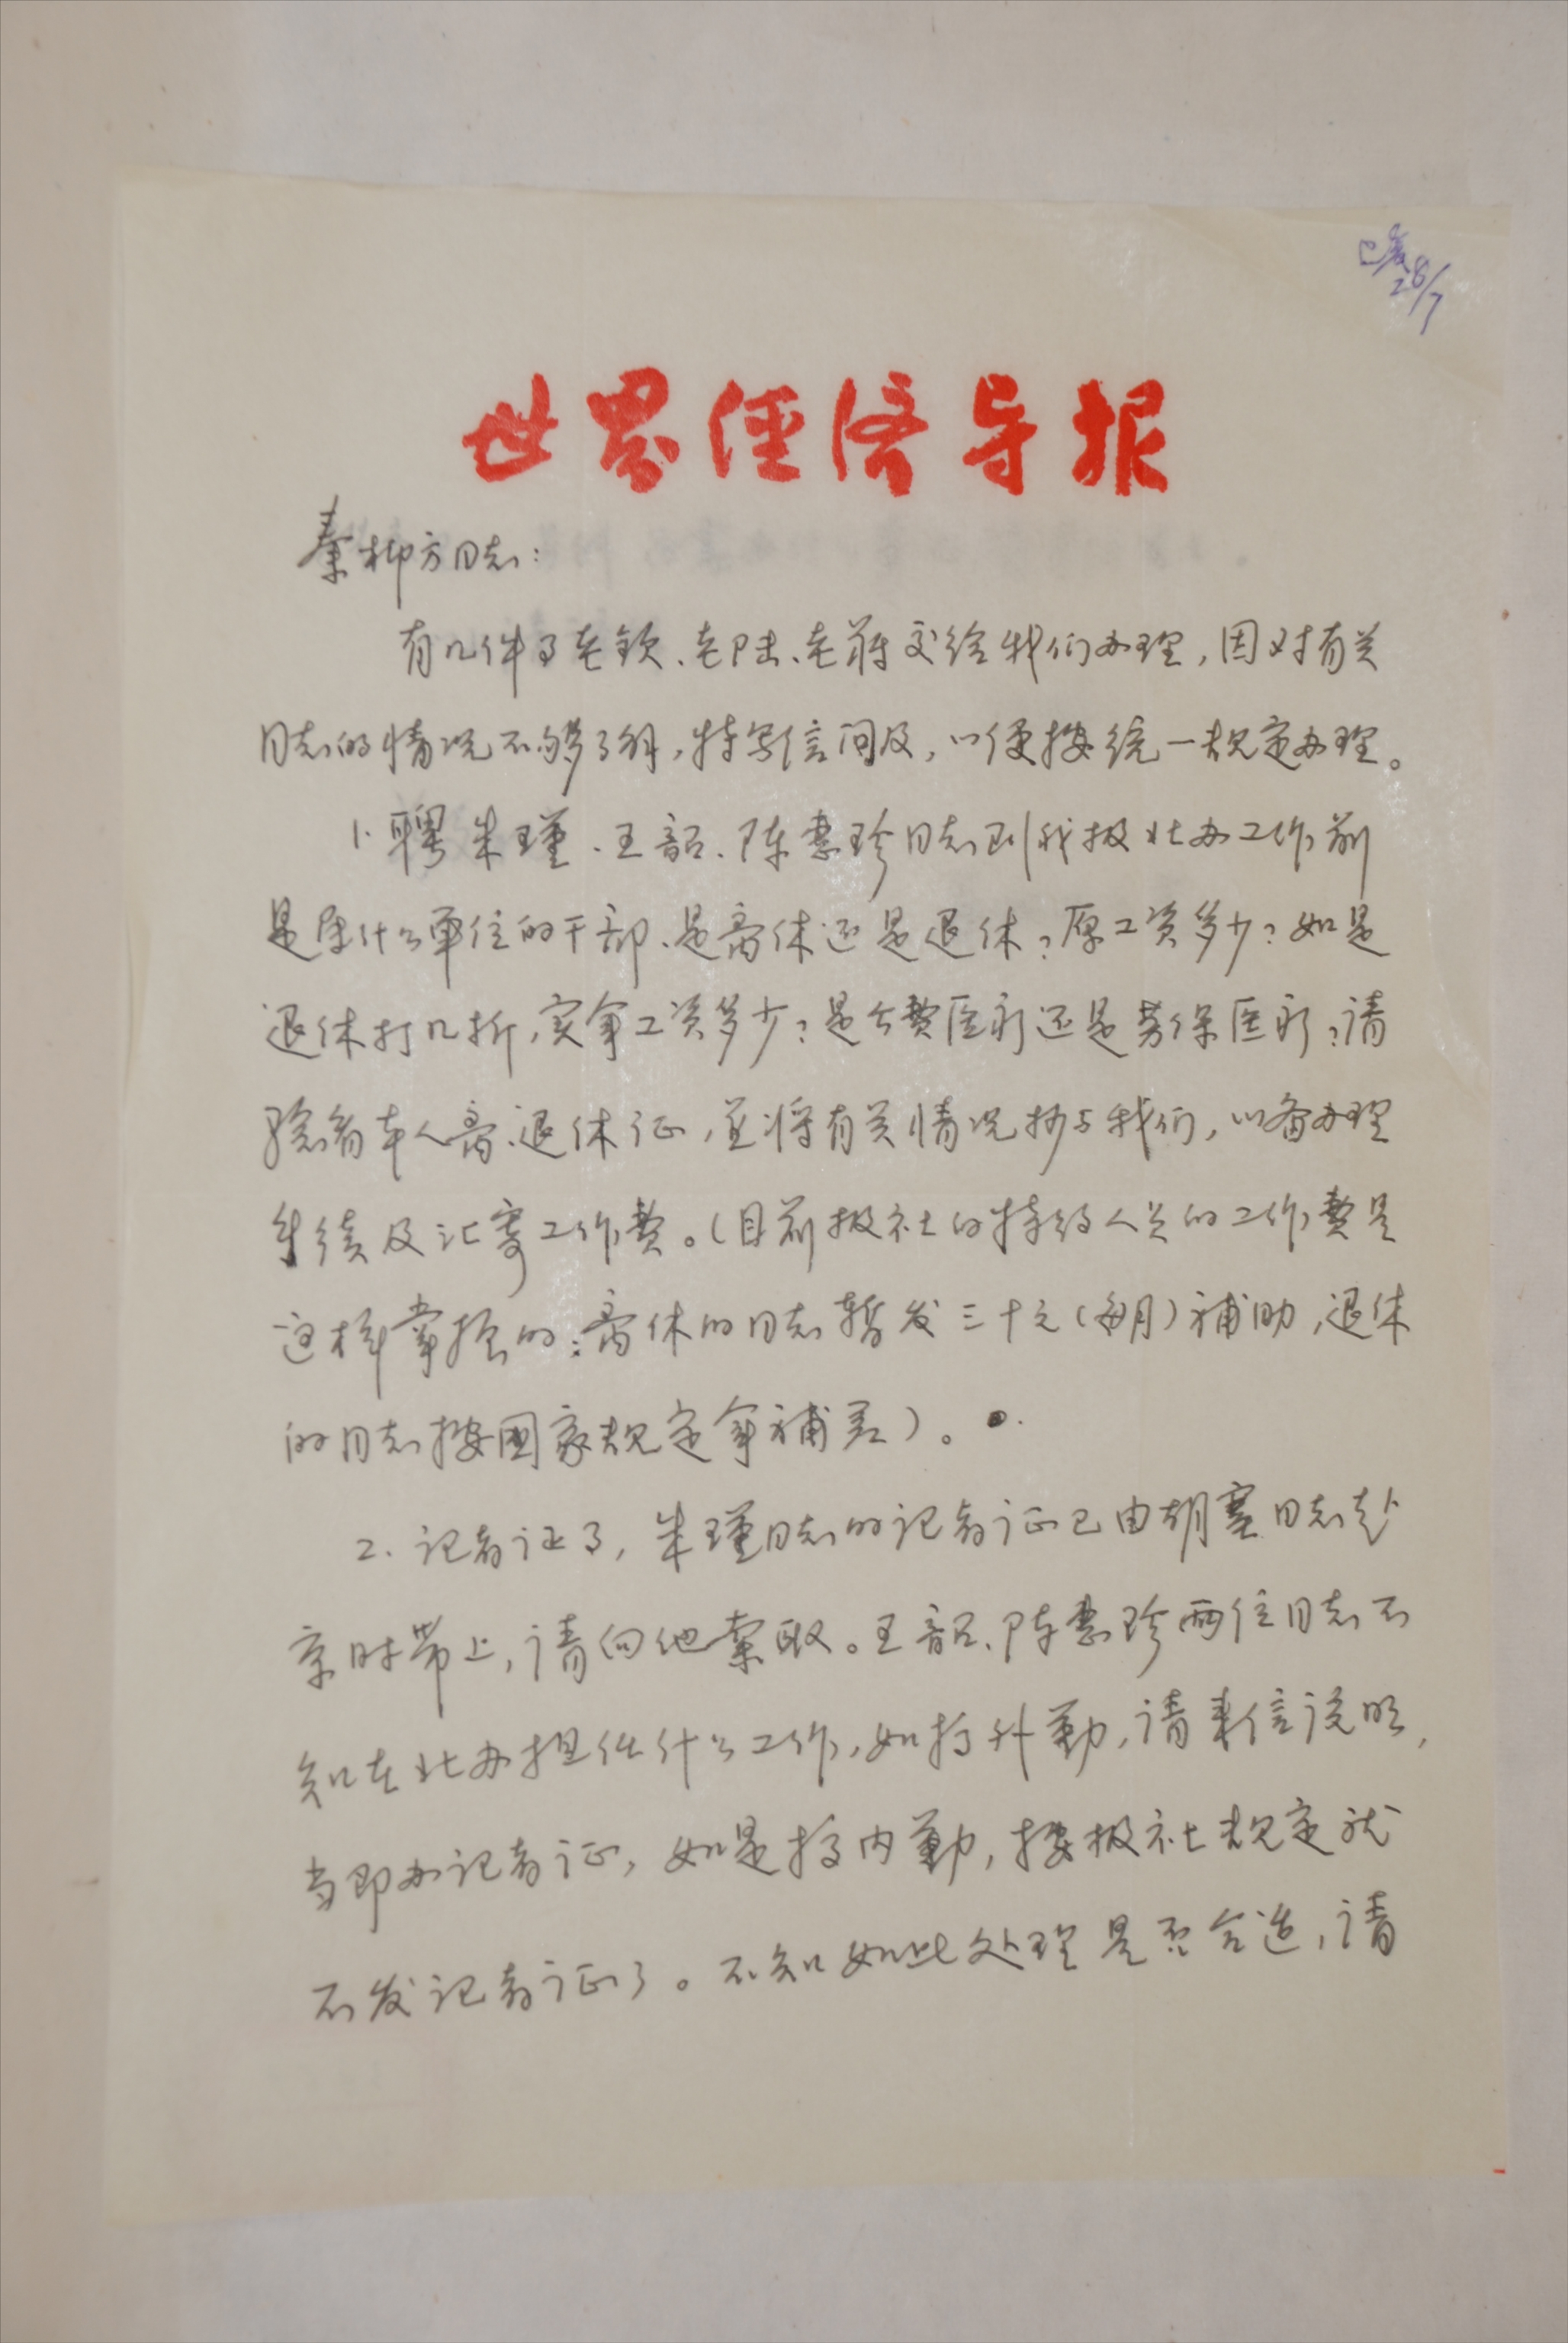 已复
28/7
世界经济导报
秦柳方同志：
有几件事老钦、老陆、老蒋交给我们办理，因对有关
同志的情况不够了解，特写信问及，以便按统一规定办理。
1. 聘朱瑾、王韶、陈惠珍同志到我报北办工作前
是属什么单位的干部、是离休还是退休？原工资多少？如是
退休打几折，实拿工资多少？是公费医疗还是劳保医疗？请
验看本人离、退休证，并将有关情况抄与我们，以备办理
手续及汇寄工作费。（目前报社的特约人员的工作费是
这样掌握的：离休的同志暂发三十元（每月）补助，退休
的同志按国家规定拿补差）。
2. 记者证事，朱瑾同志的记者证已由胡塞同志赴
京时带上，请向他索取。王韶、陈惠珍两位同志不
知在北办担任什么工作，如搞外勤，请来信说明，
当即办记者证，如是搞内勤，按报社规定就
不发记者证了。不知如此处理是否合适，请